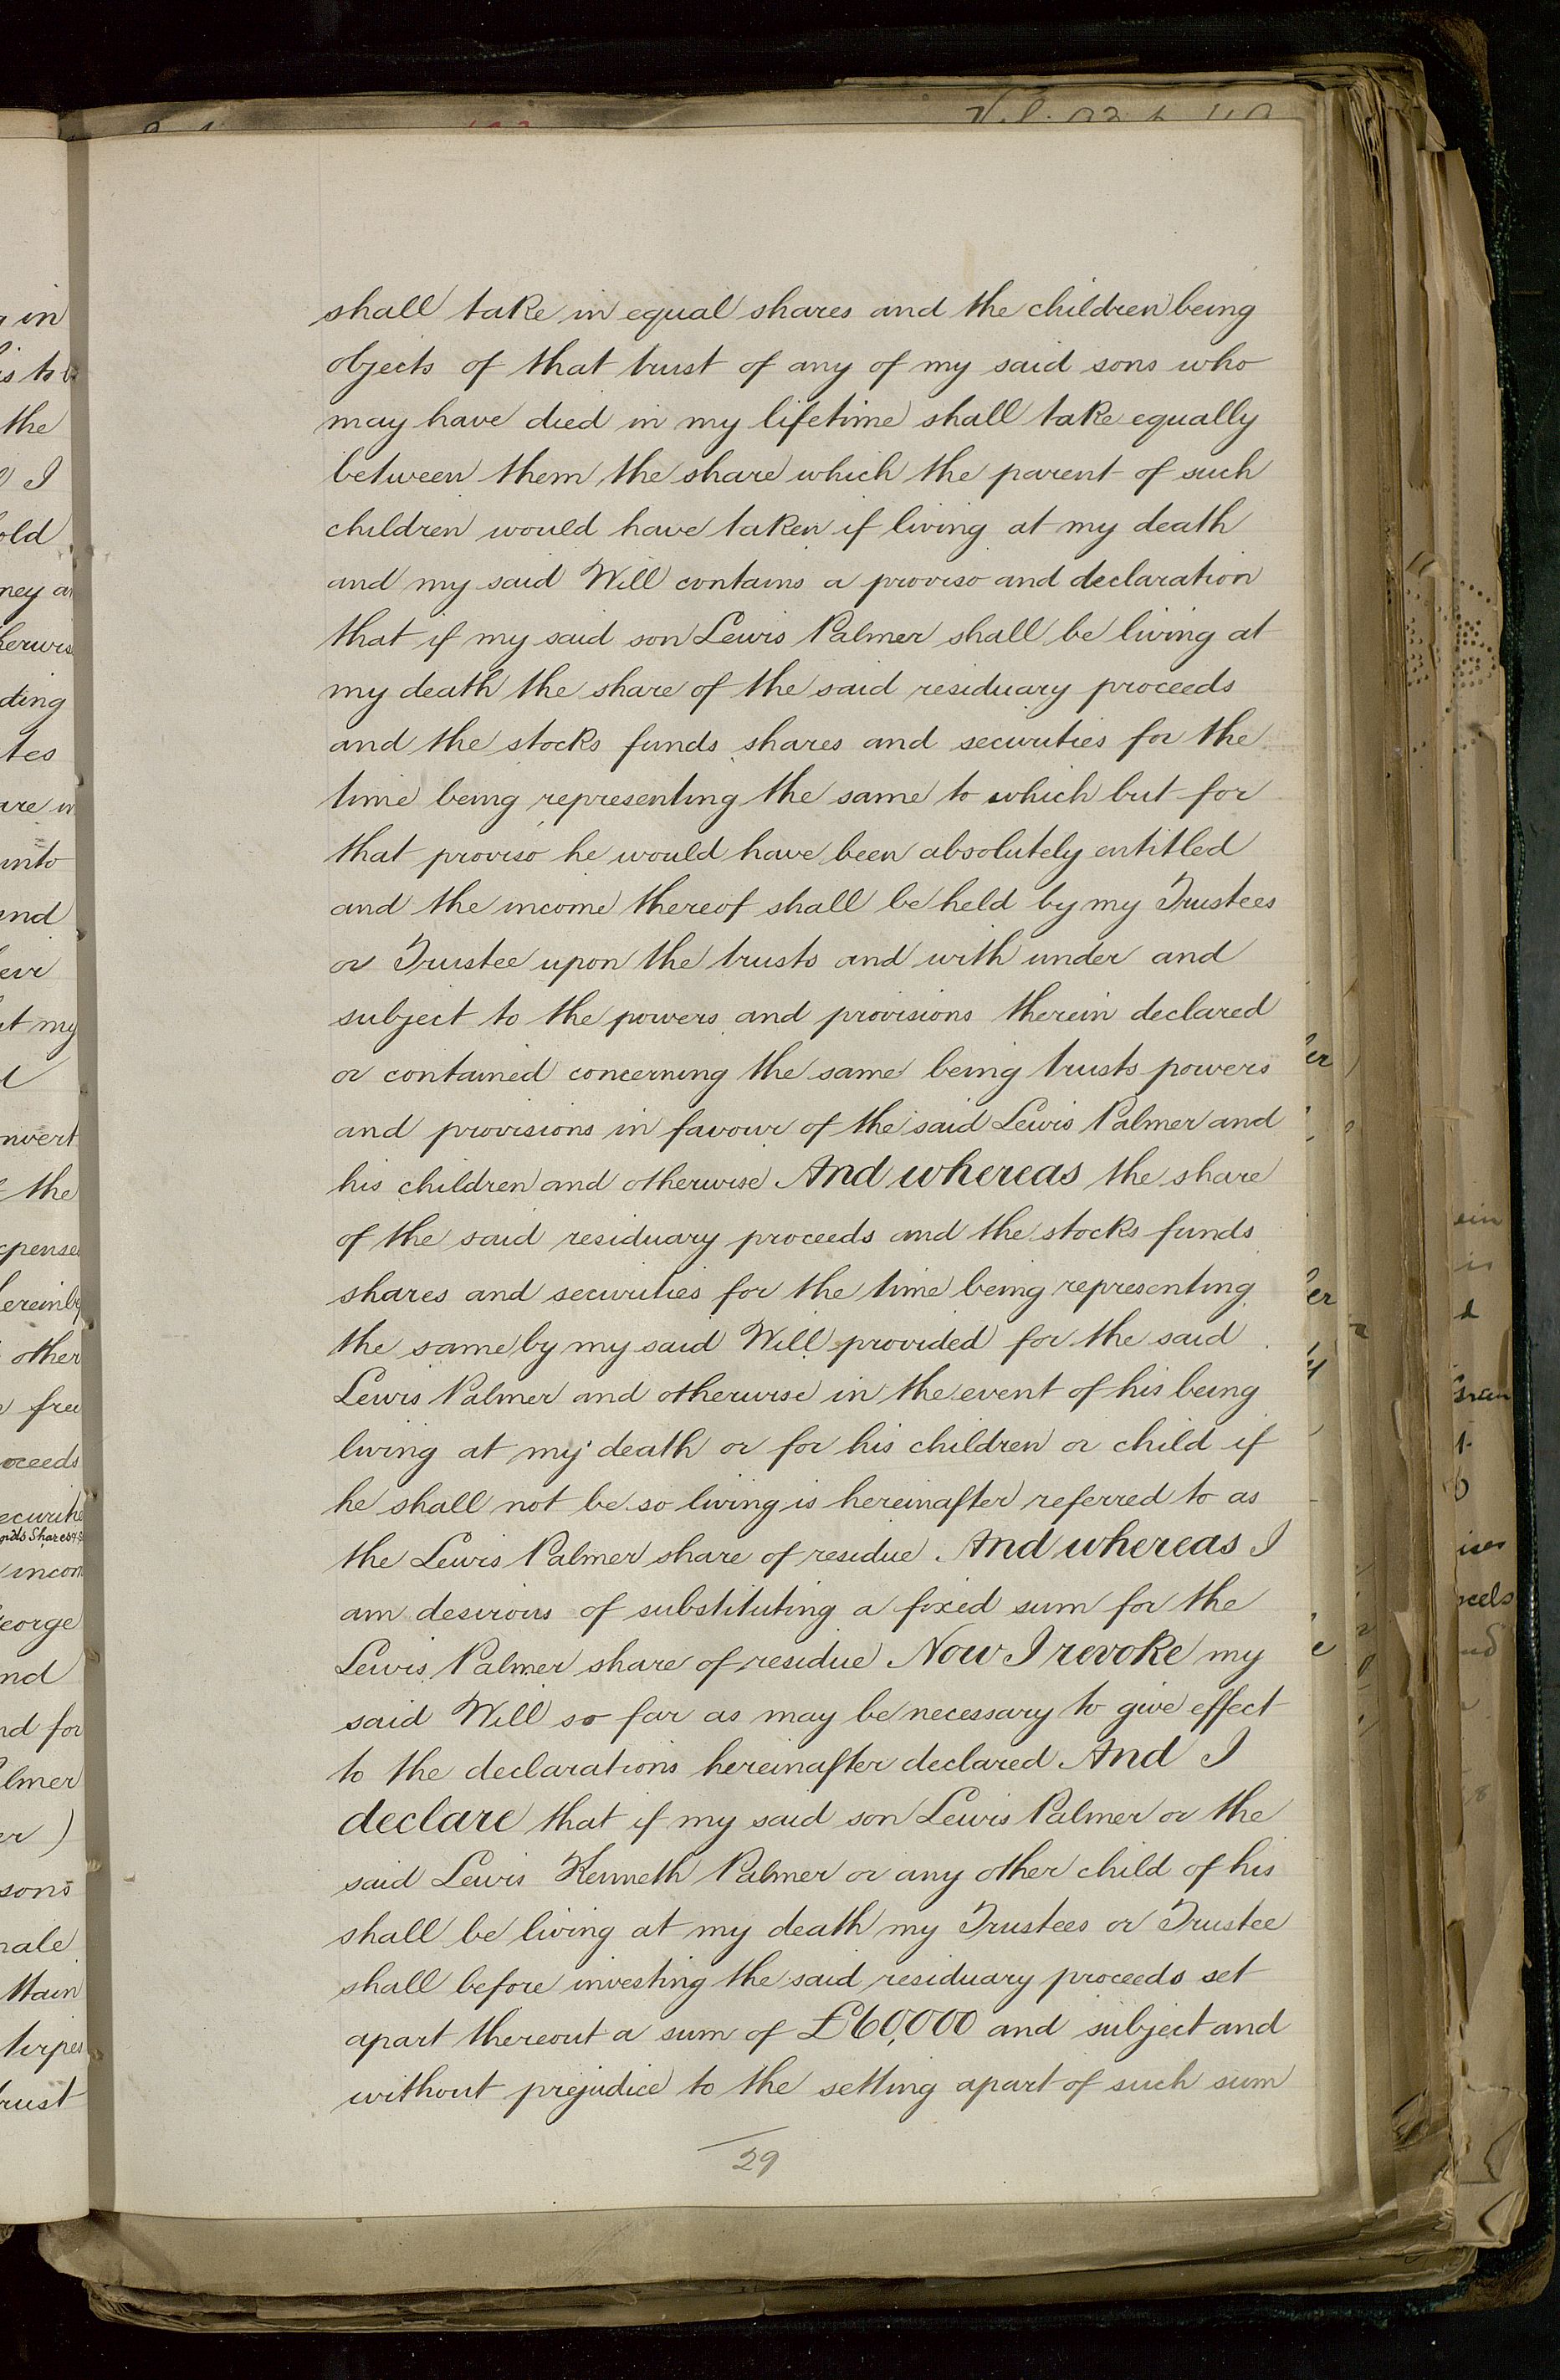 shall take in equal shares and the children being
objects of that trust of any of my said sons who
may have died in my lifetime shall take equally
between them the share which the parent of such
children would have taken if living at my death
and my said Will contains a proviso and declaration
that if my said son Lewis Palmer shall be living at
my death the share of the said residuary proceeds
and the stocks funds shares and securities for the
time being representing the same to which but for
that proviso he would have been absolutely entitled
and the income thereof shall be held by my Trustees
or Trustee upon the trusts and with under and
subject to the powers and provisions therein declared
or contained concerning the same being trusts powers
and provisions in favour of the said Lewis Palmer and
his children and otherwise And whereas the share
of the said residuary proceeds and the stocks funds
shares and securities for the time being representing
the same by my said Will provided for the said
Lewis Palmer and otherwise in the event of his being
living at my death or for his children or child if
he shall not be so living is hereinafter referred to as
the Lewis Palmer share of residue. And whereas I
am desirous of substituting a fixed sum for the
Lewis Palmer share of residue Now I revoke my
said Will so far as may be necessary to give effect
to the declarations hereinafter declared And I
declare that if my said son Lewis Palmer or the
said Lewis Kenneth Palmer or any other child of his
shall be living at my death my Trustees or Trustee
shall before investing the said residuary proceeds set
apart thereout a sum of £60,000 and subject and
without prejudice to the setting apart of such sum
29